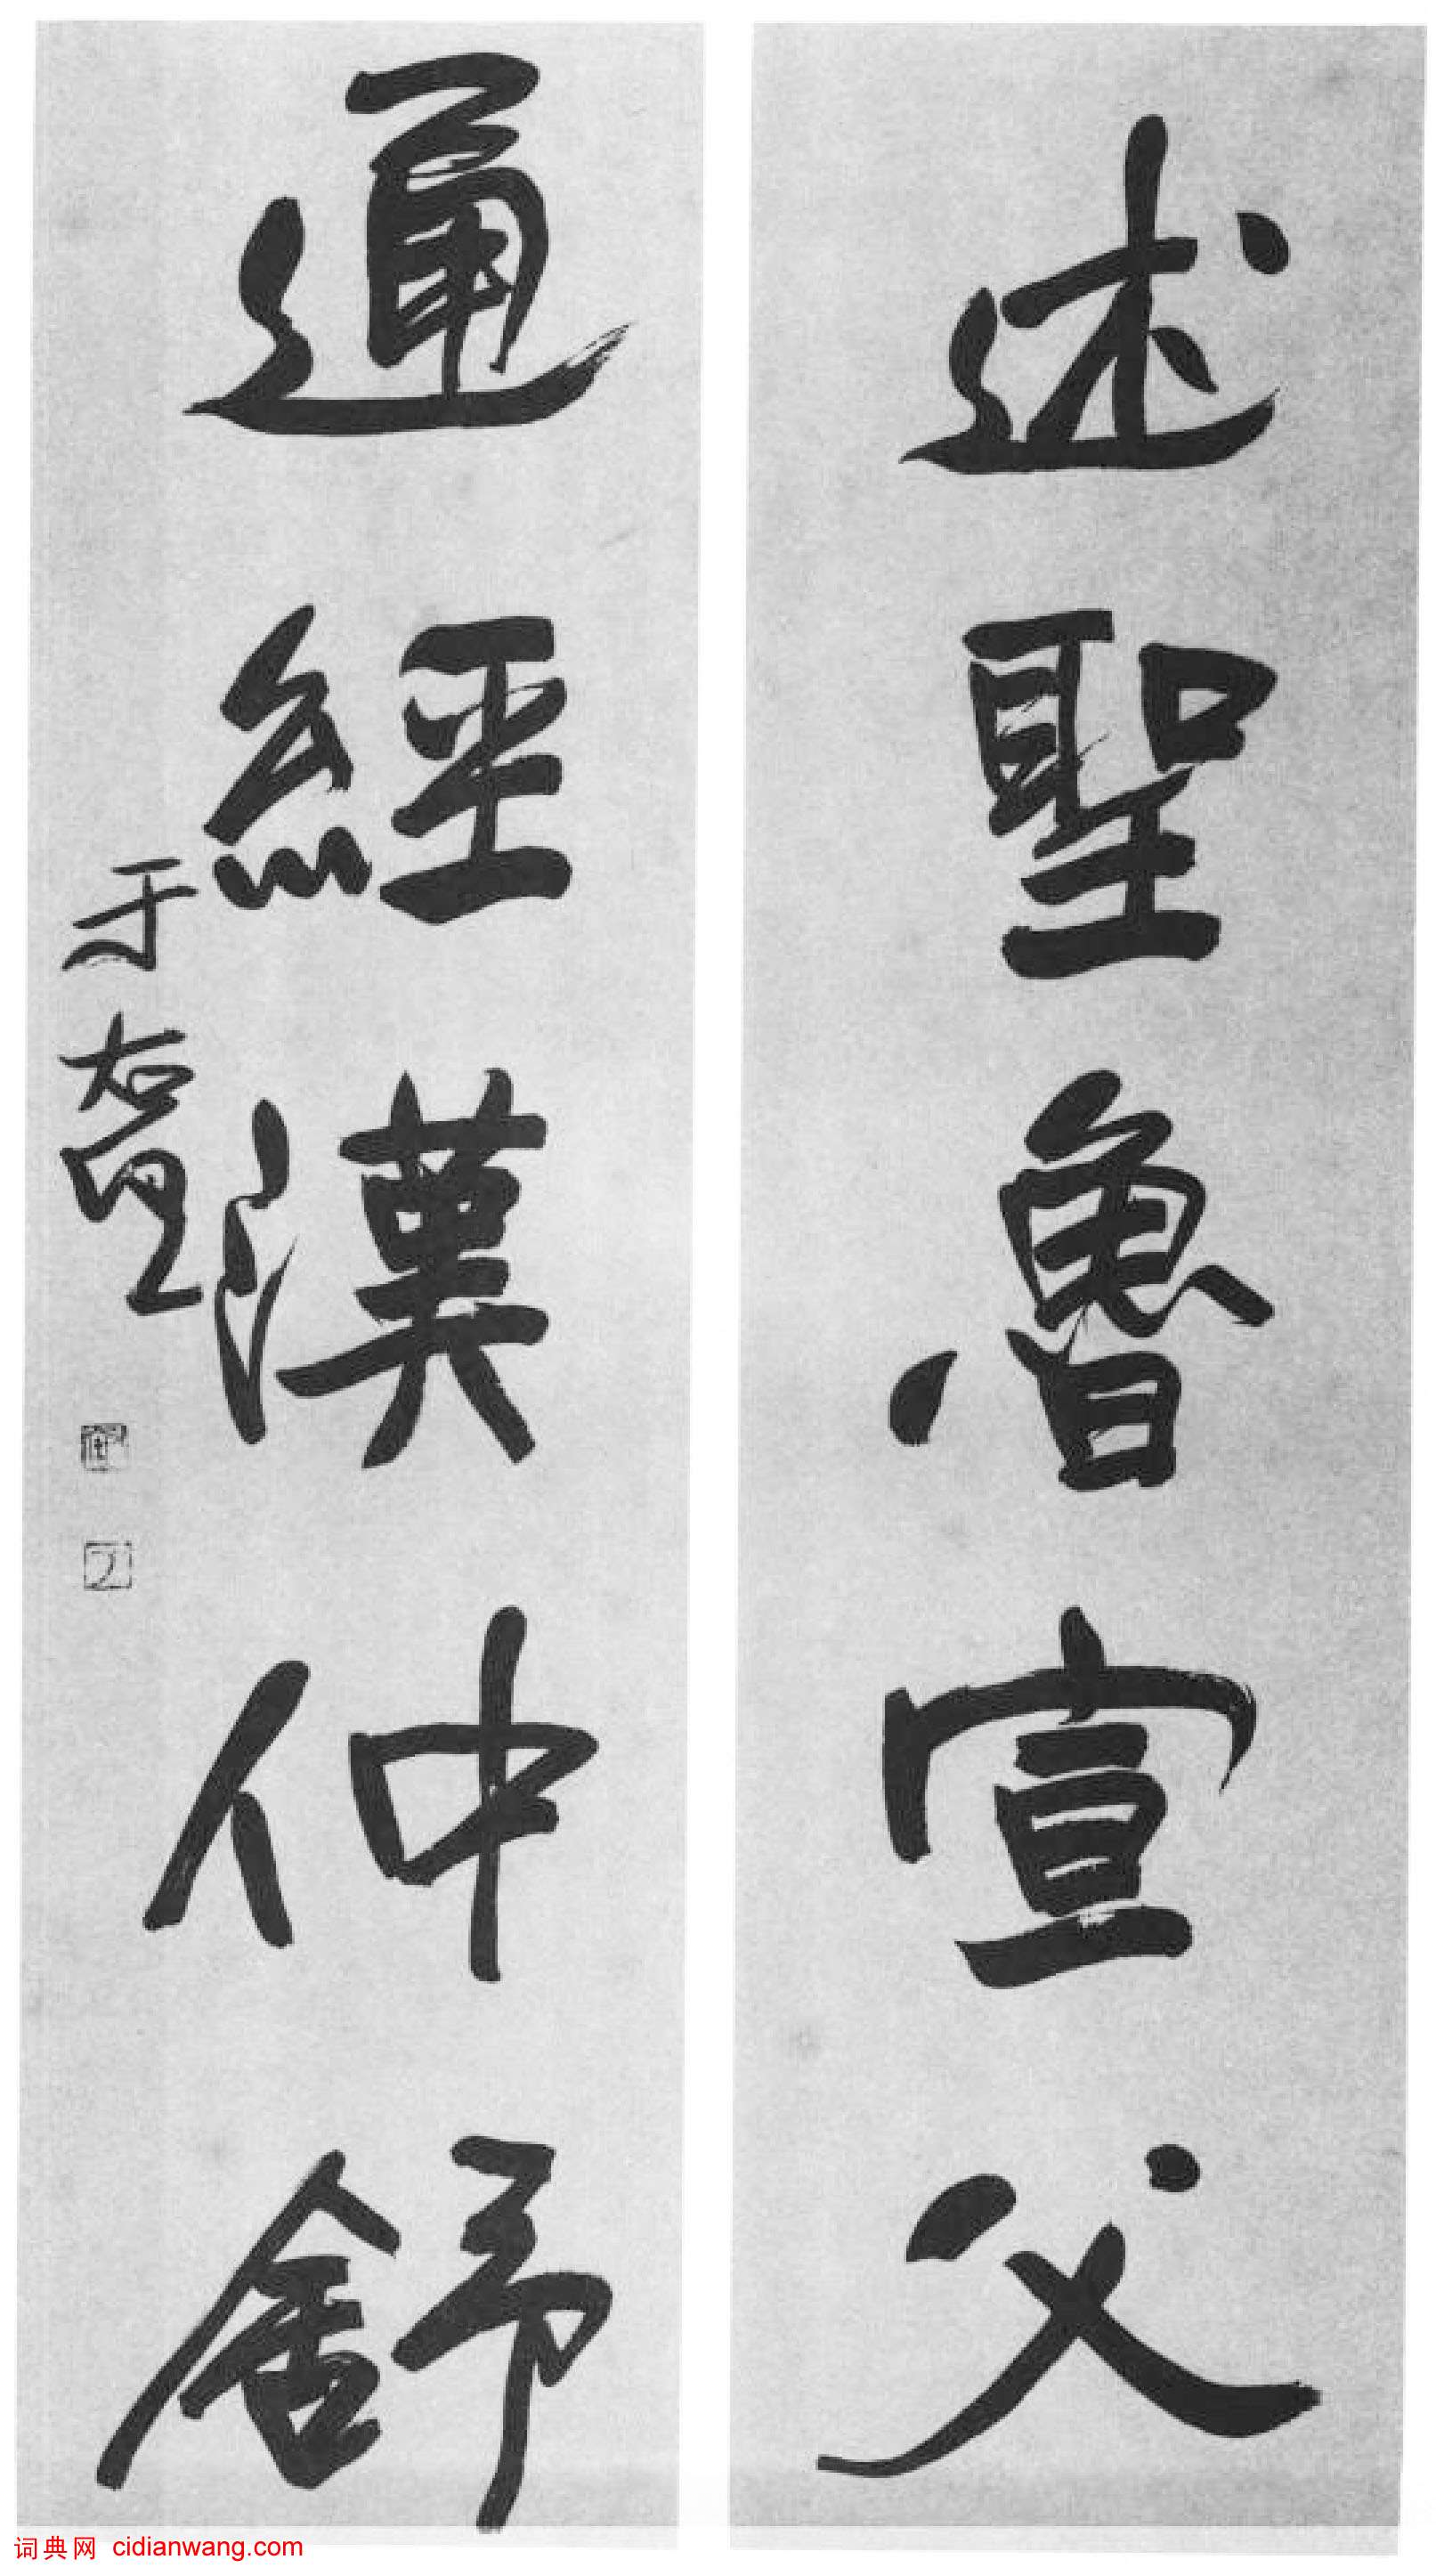 述聖魯宣父
通經漢仲舒
于右任
词典网 cidianwang.com